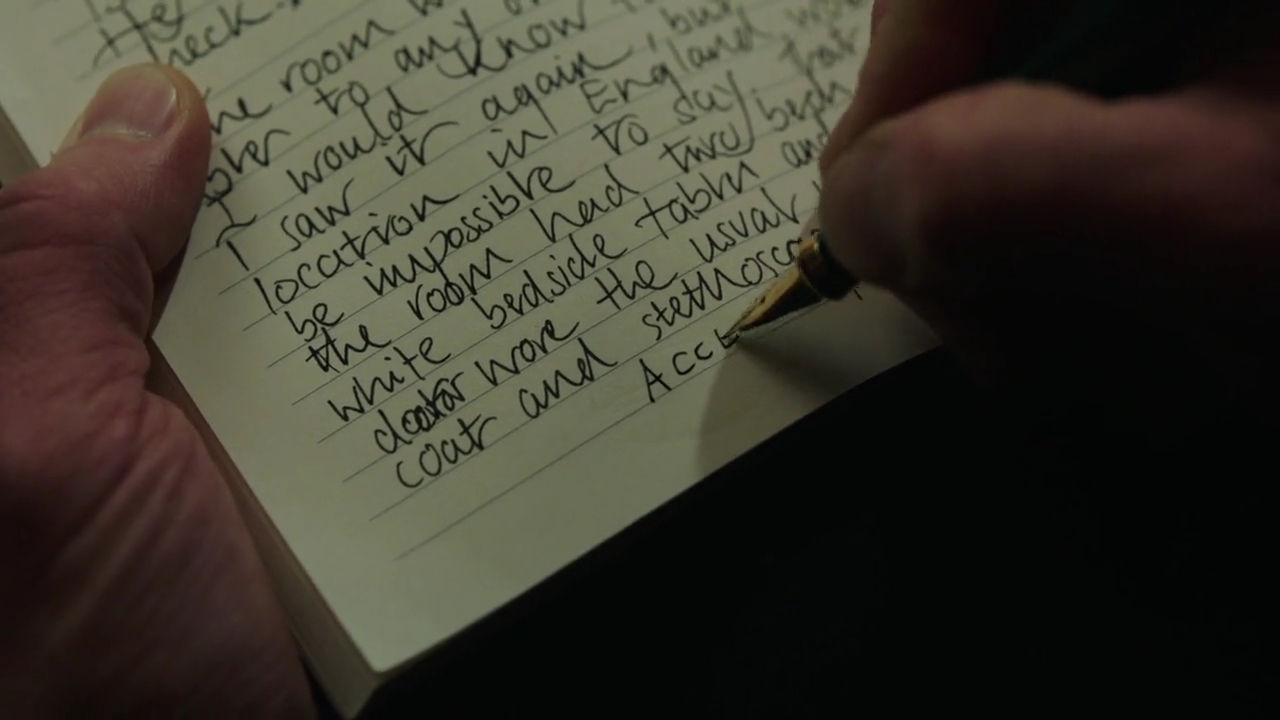 He
neck.
the room
to any
I would know
I saw it again, but
location in England
be impossible to say that
the room had two beds
white bedside table and
doctor wore the usual
coat and stethosco
Acce